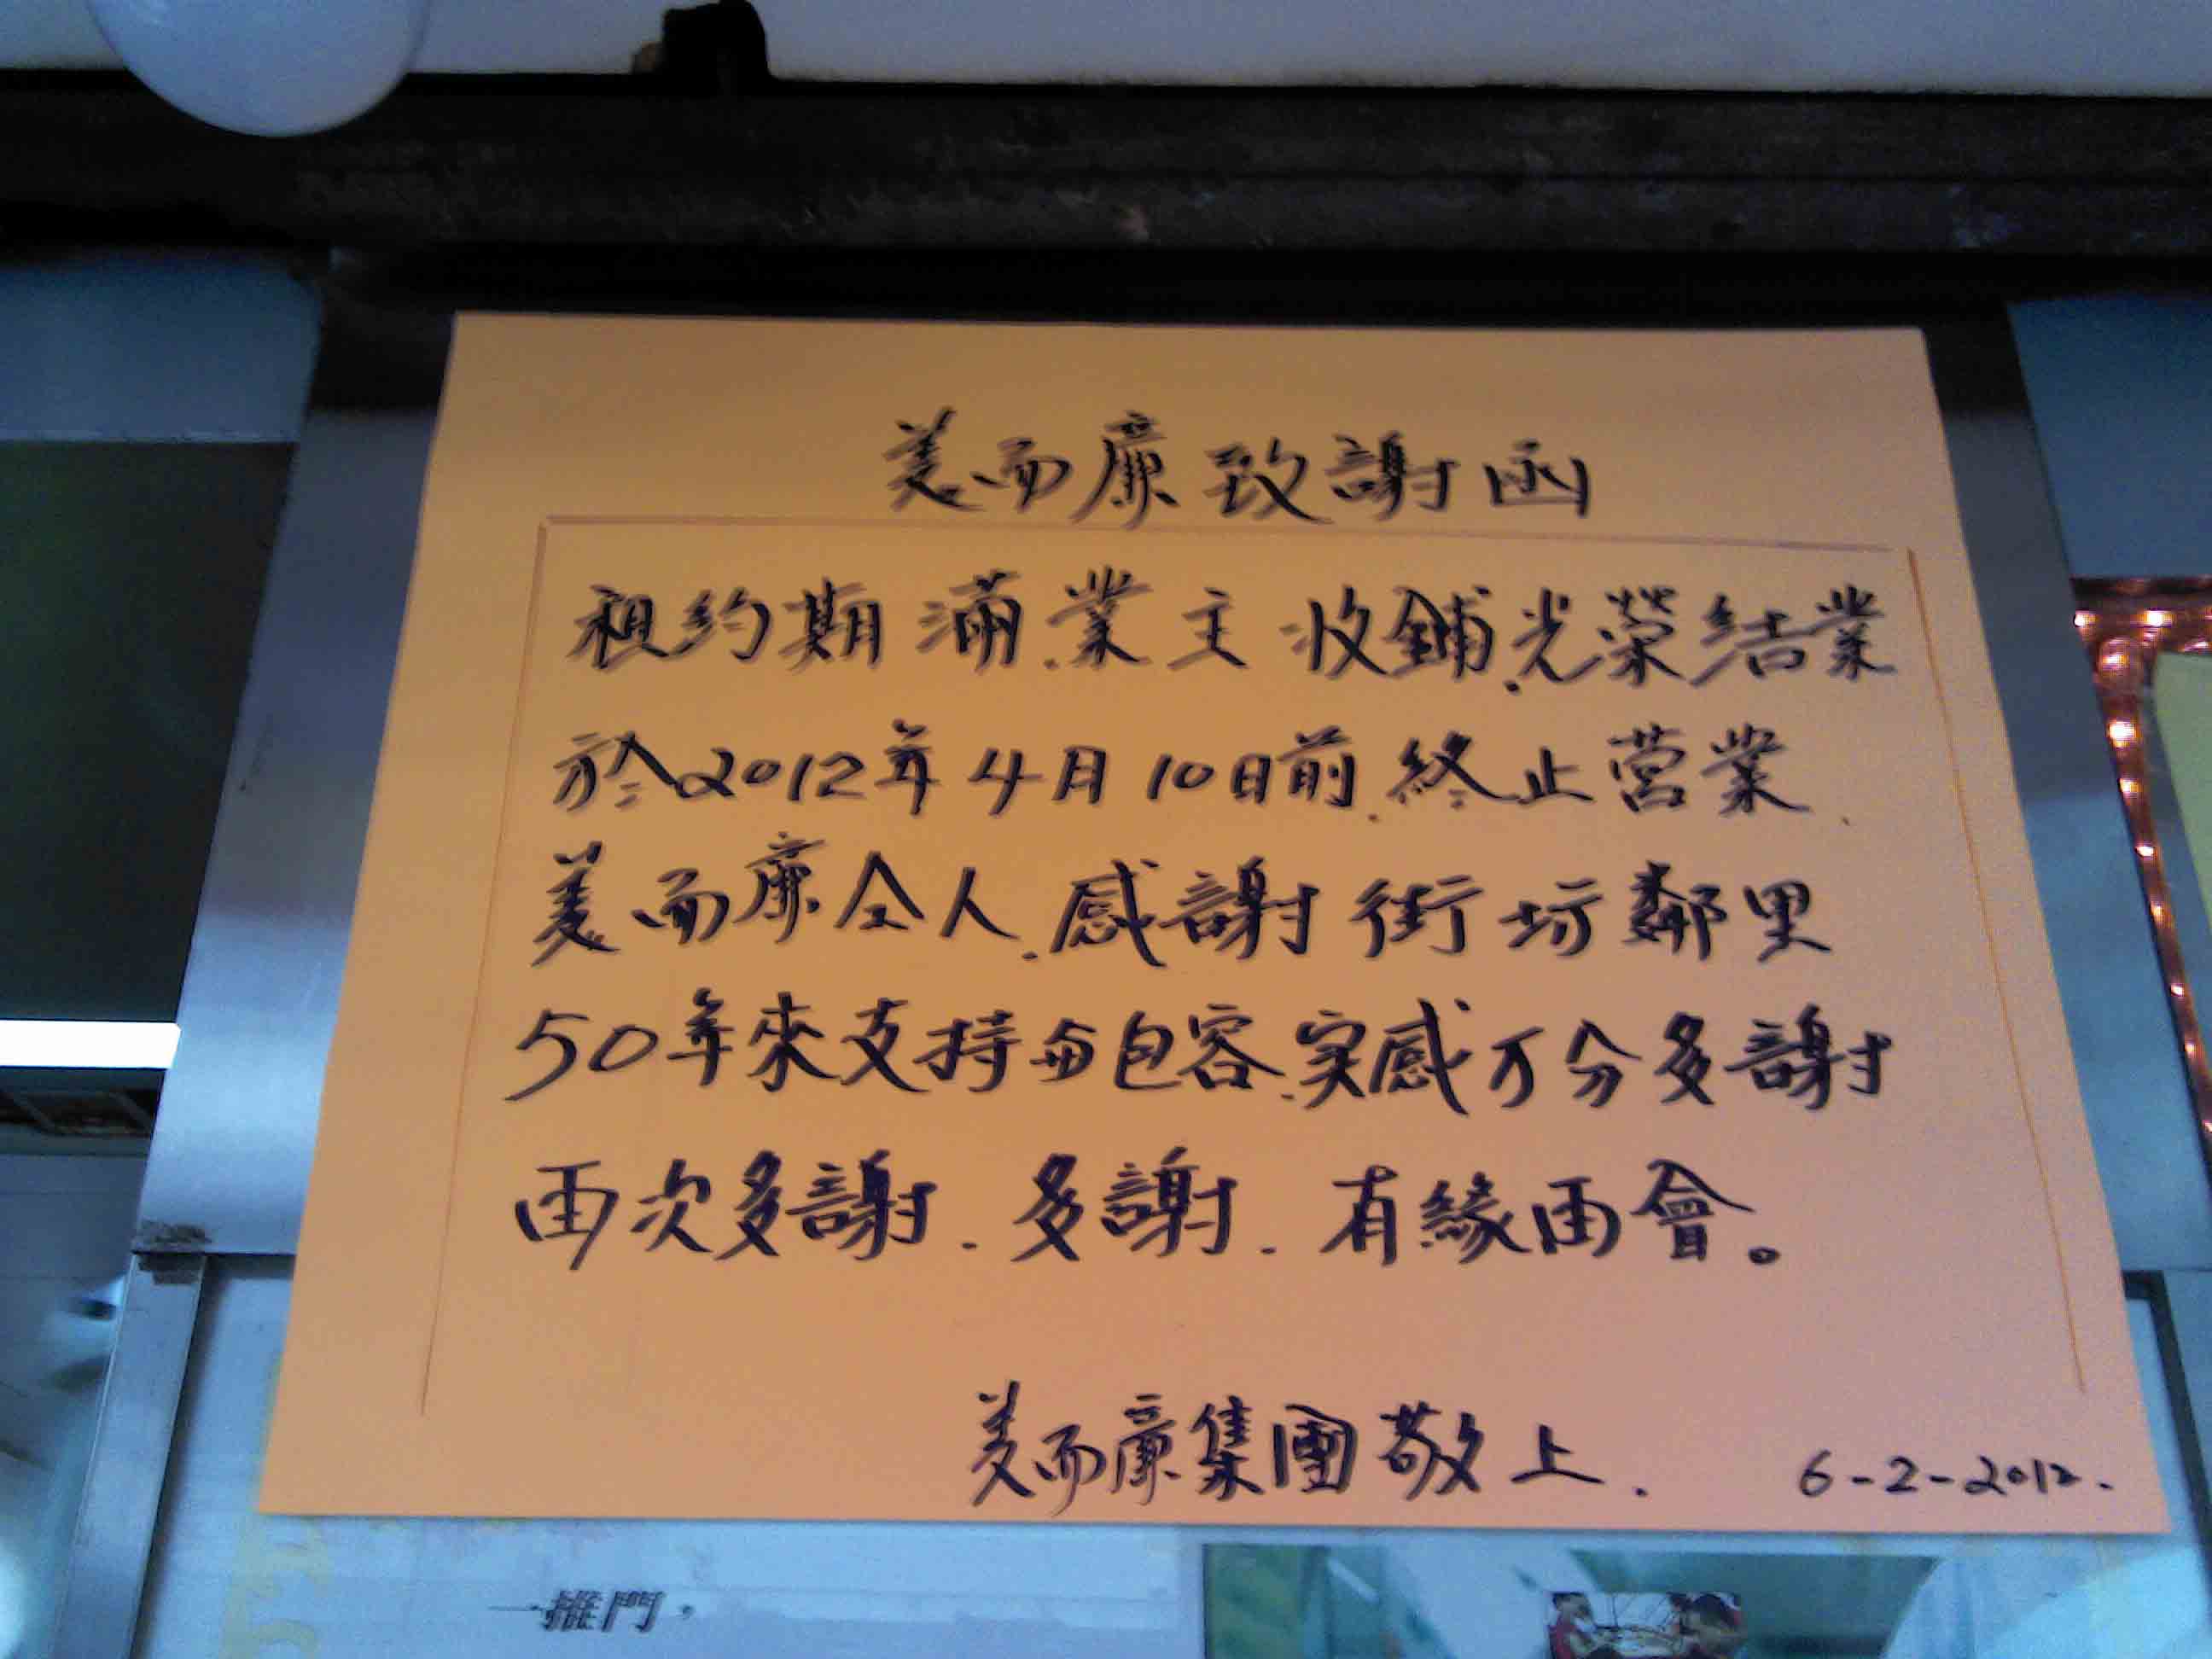 美而廉致謝函
租約期滿.業主收鋪.光榮結業
於2012年4月10日前.終止营業.
美而廉仝人.感謝街坊鄰里
50年來支持与包容.实感万分多謝
再次多謝.多謝.有緣再會。
美而廉集團敬上.
6-2-2012.
一推門，